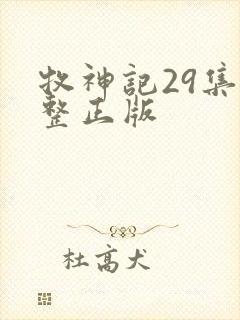 牧神記29集
整正版
杜高犬